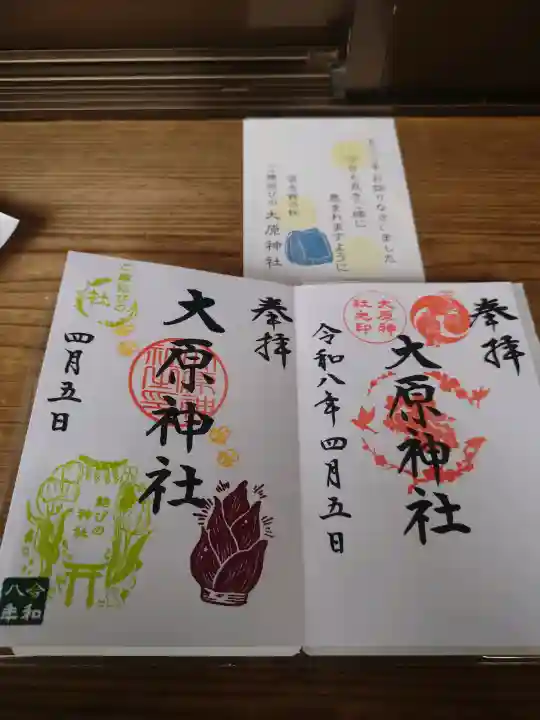 ようこそお詣りなさいました
今日も良きご縁に
恵まれますように
ご縁結びの 大原神社
奉拝
大原神社
令和八年四月五日
大原神社之印
奉拝
大原神社
四月五日
ご縁結びの社
結びの神社
令和八年